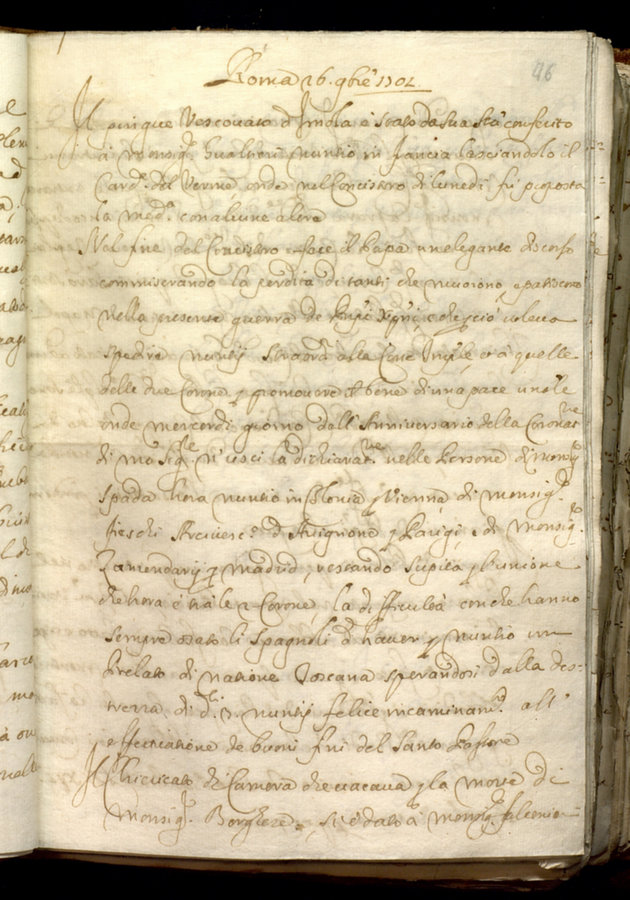 96
Roma 26. 9bre 1701.
Il pingue Vescovato d'Imola è stato da Sua Stà conferito
à Monsig.r Gualtieri nuntio in Francia lasciandolo il
Card.l del Verme onde nel Concistoro di lunedi fù proposta
la med.a con alcune altre
Nel fine del Concistoro fece il Papa un elegante discorso
commiserando la perdita di tanti che muoiono, e patiscono
nella presente guerra de e che p ciò voleva
spedire nuntij straord.ri alla Corte Imp.le et à quelle
delle due Corone p promovere il bene di una pace un.le
onde mercordi giorno dell'Anniversario della Coronat.ne
di n'usci la dichiarat.ne nelle Persone di Monsig.r
Spada hora nuntio in Polonia p Vienna, di Monsig.r
fieschi Arcivesc.o d'Avignone p Parigi, e di Monsig.r
Zamendarij p Madrid, restando Supita p l'unione
che hora è trà le 2 Corone, la difficultà con che hanno
sempre osato li Spagnoli d'haver p nuntio un
Prelato di natione Toscana sperandosi dalla des=
trezza di d.i 3. nuntij felice incaminam.to all'
effettuatione de buoni fini del Santo Pastore
Il Chiericato di Camera che vacava p la morte di
Monsig.r Borghese, si è dato à Monsig.r falconie=